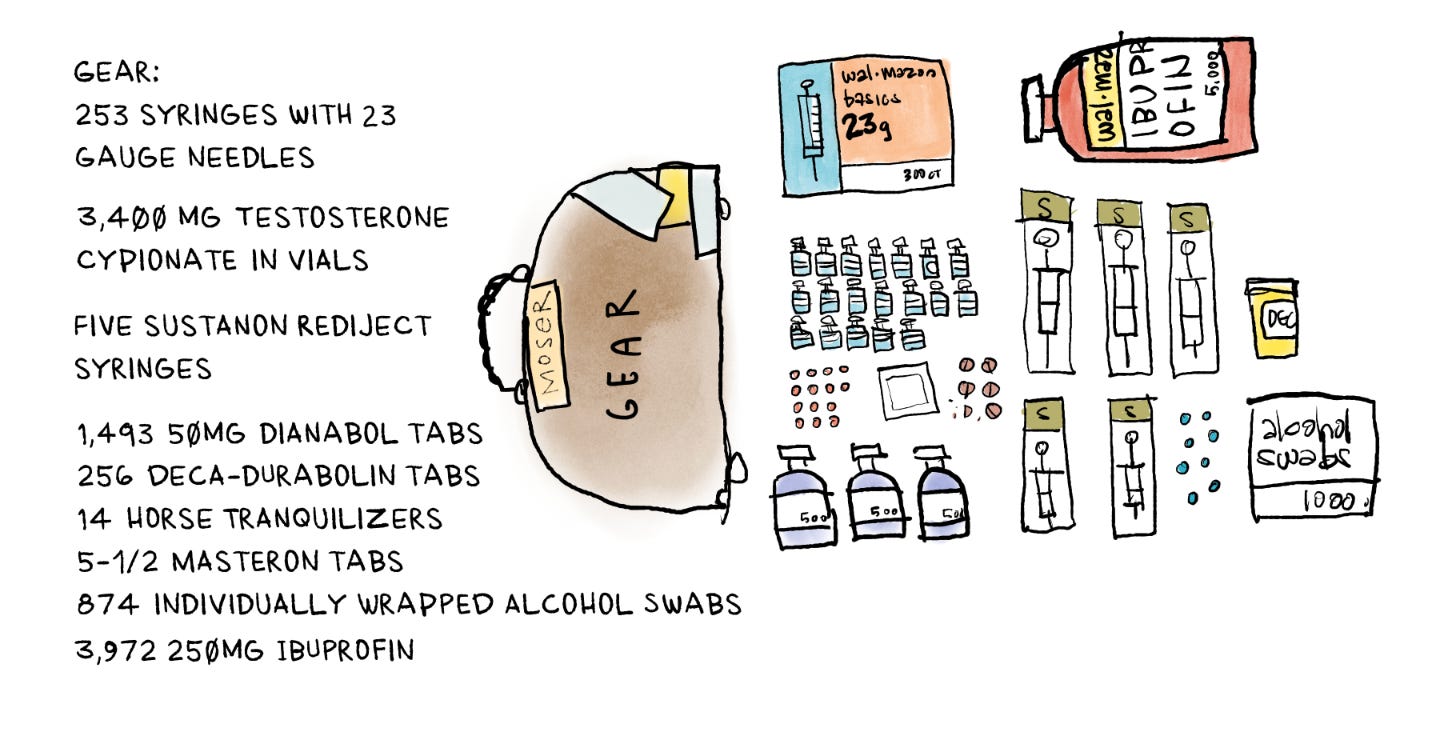 GEAR:
253 SYRINGES WITH 23
GAUGE NEEDLES
3,400 MG TESTOSTERONE
CYPIONATE IN VIALS
FIVE SUSTANON REDIJECT
SYRINGES
1,493 50MG DIANABOL TABS
256 DECA-DURABOLIN TABS
14 HORSE TRANQUILIZERS
5-1/2 MASTERON TABS
874 INDIVIDUALLY WRAPPED ALCOHOL SWABS
3,972 250MG IBUPROFIN
MOSER
GEAR
wal•mazon
basics
23g
300 CT
wal•mazon
IBUPR
OFIN
5,000
S
S
S
DEC
500
500
500
S
S
alcohol
swabs
1000